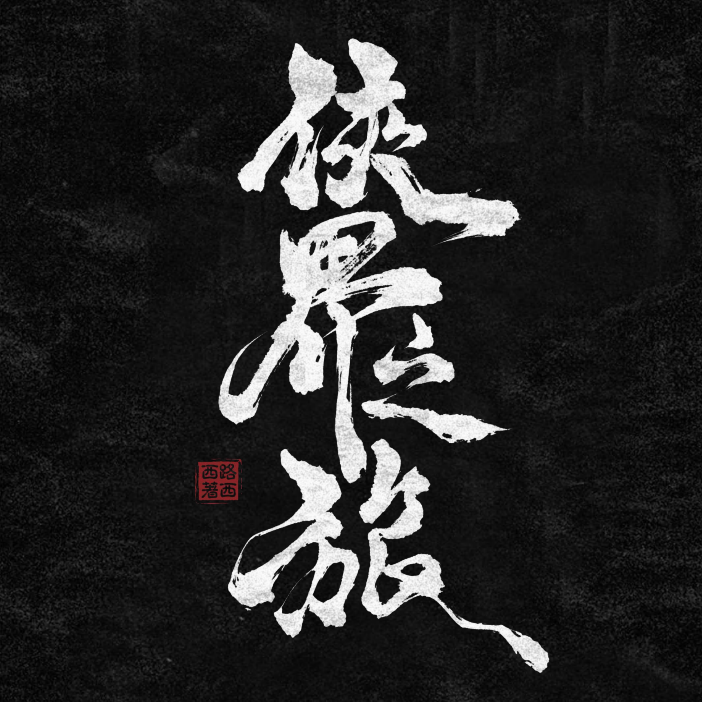 侠界之旅
路西西著